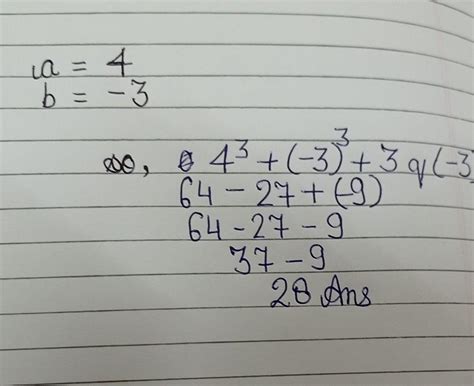 a = 4
b = -3
so, 4³ + (-3)³ + 3 of (-3
64 - 27 + (-9)
64 - 27 - 9
37 - 9
28 Ans